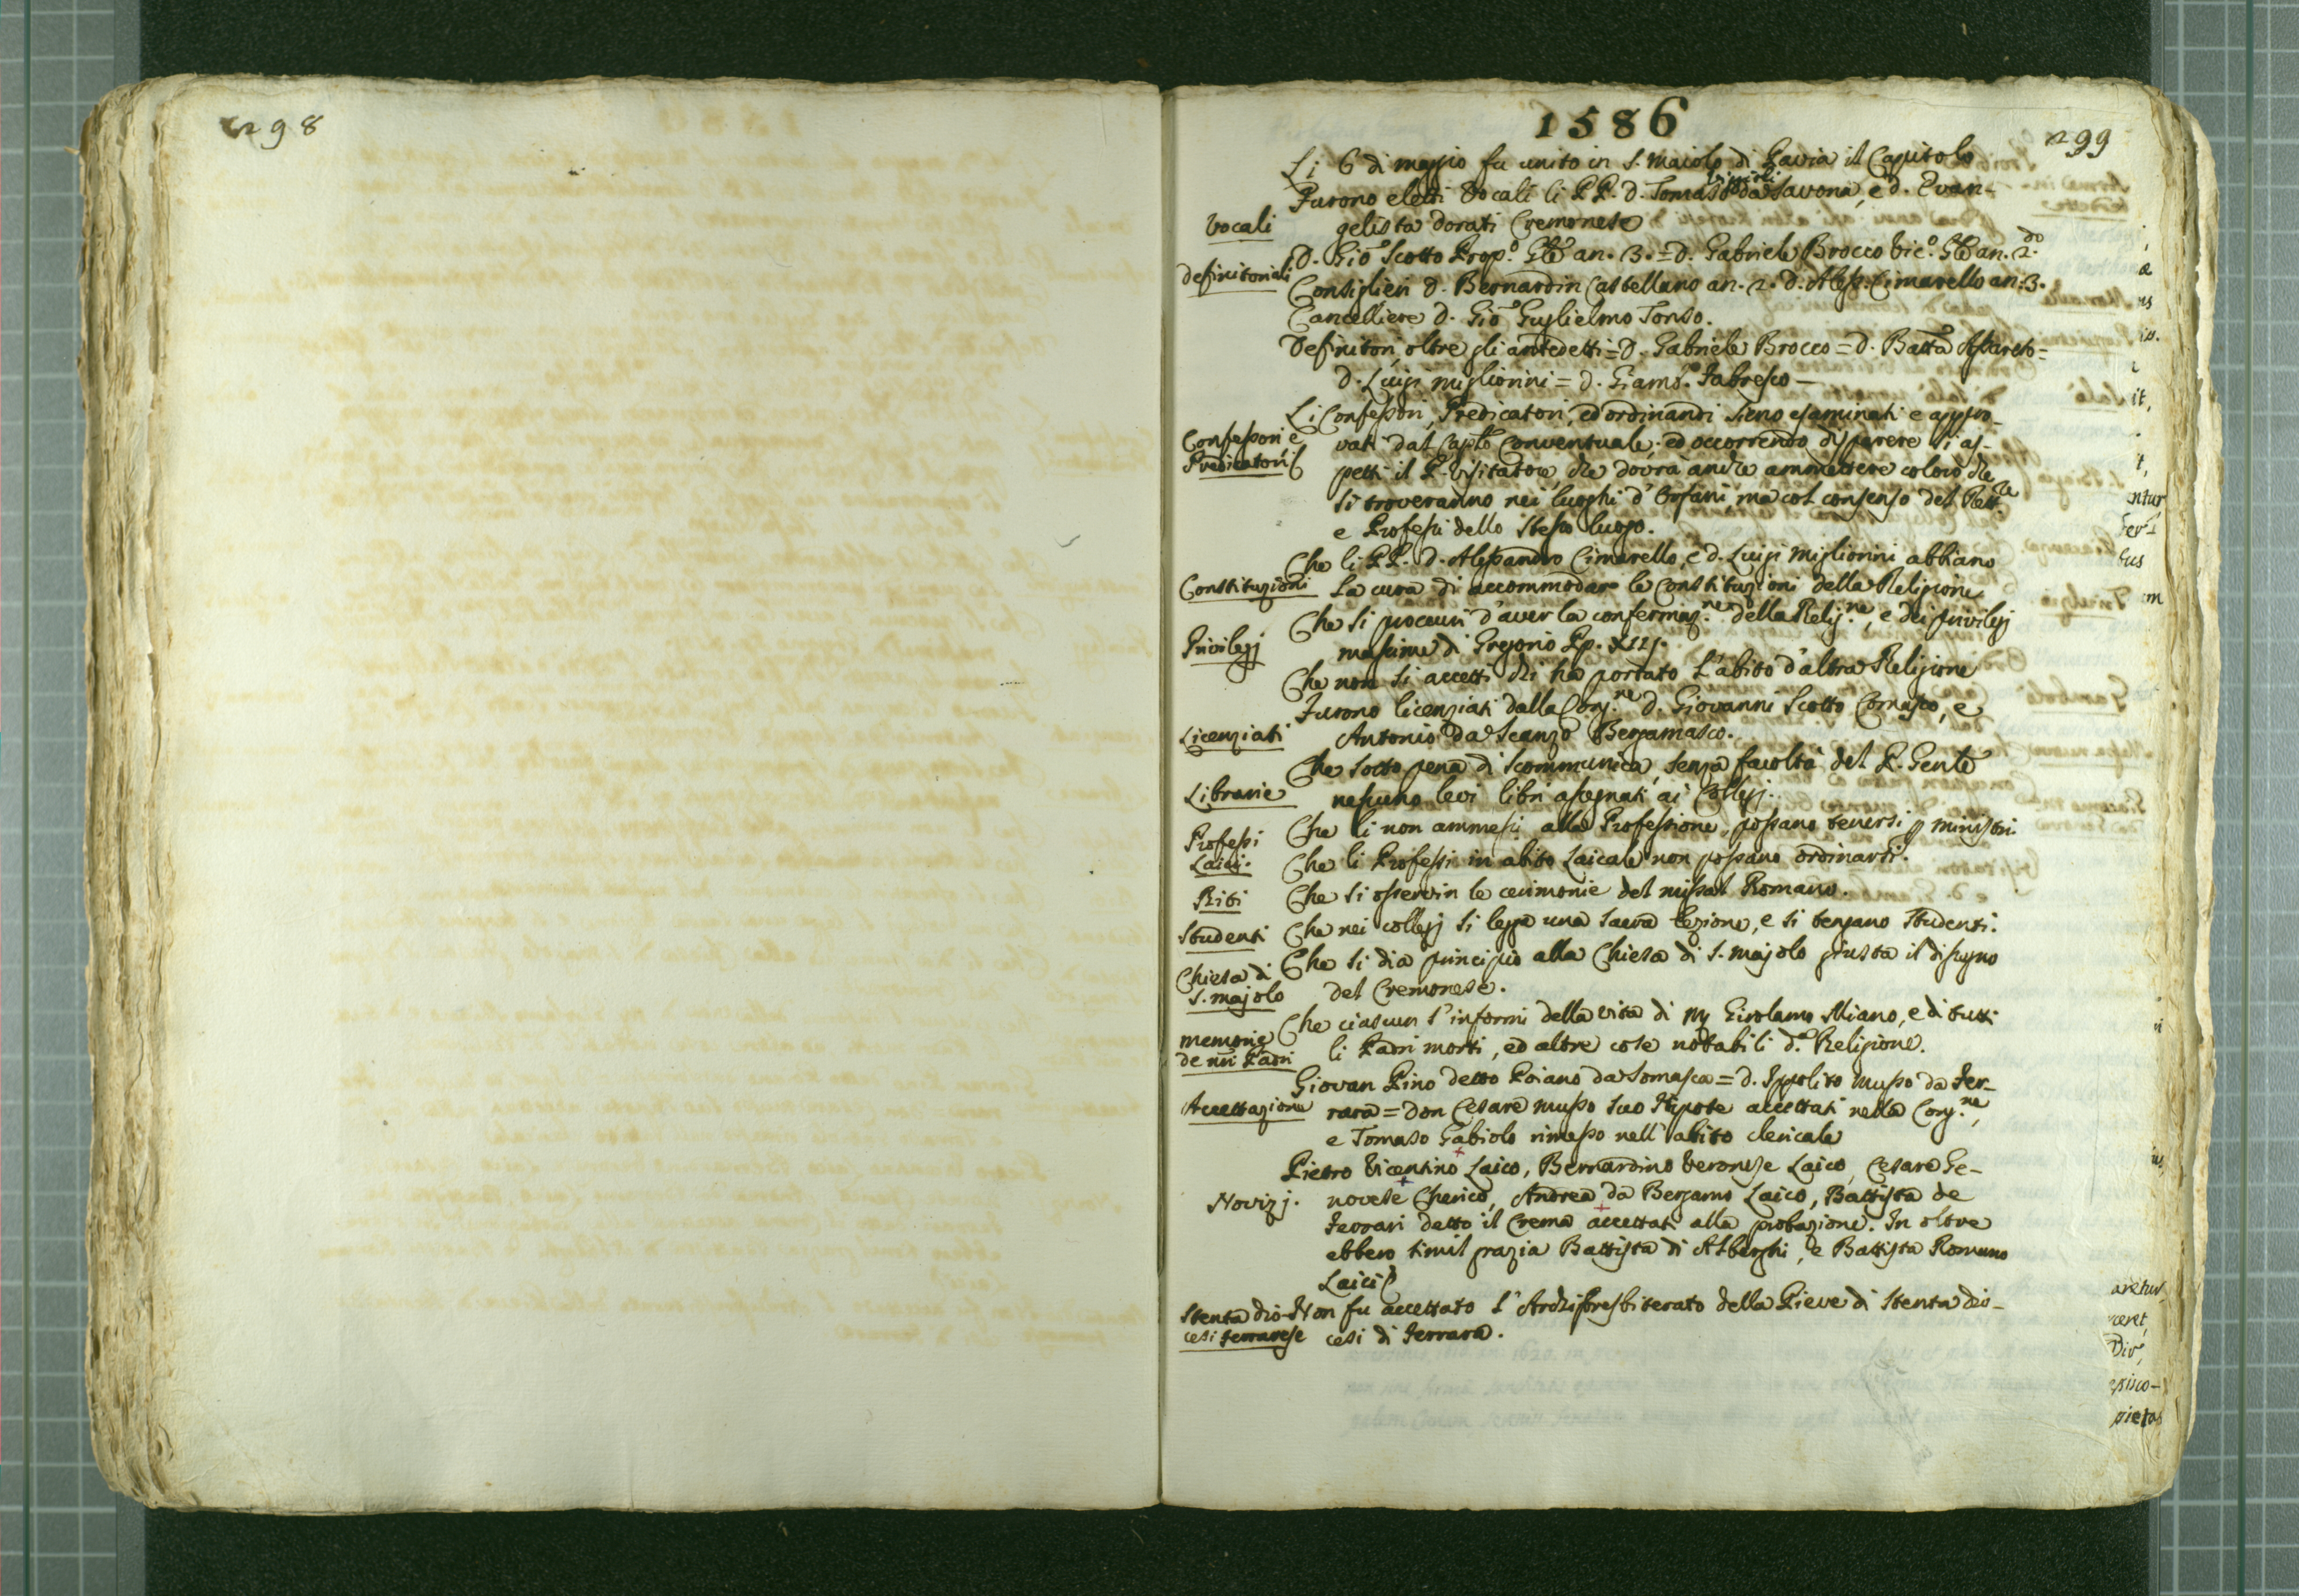 298
1586
299
Li 6 di maggio fu unito in S. Maiolo di Pavia il Capitolo
Furono eletti Vocali li PP. D. Tomaso da Savona, e D. Evan-
Vocali
gelista Dorati Cremonese
Definitoriali
D. Gio. Scotto Prop.º Gle an. 3. = D. Gabriele Brocco Vic.º Gle an. 2.do
Consiglieri D. Bernardin Castellano an. 2. D. Aless. Cimarello an. 3.
Cancelliere D. Gio Guglielmo Tonso.
Definitori oltre gli antedetti = D. Gabriele Brocco = D. Batta
D. Luigi Migliorini = D. Giam.º Fabresco —
Li Confessori, Predicatori, ed ordinandi sieno esaminati e appro-
Confessori e
Predicatori
vati dal Caplo Conventuale, ed occorrendo disparere si as-
petti il P. Visitatore, che dovrà anche ammettere coloro che
si troveranno nei luoghi d'Orfani, ma col consenso del Rett.re
e Professi dello stesso luogo.
Che li PP. D. Alessandro Cimarello, e D. Luigi Migliorini abbiano
Constituzioni
la cura di accommodar le Constituzioni della Religione
Che si procuri d'aver la confermaz.ne della Relig.ne, e dei privilegj
Privilegj
massime di Gregorio Pp. XIII.
Che non si accetti chi ha portato l'abito d'altra Religione
Furono licenziati dalla Cong.ne D. Giovanni Scotto Comasco, e
Licenziati
Antonio da Scanzo Bergamasco.
Che sotto pena di scommunica, senza facoltà del P. Gente
Librarie
nessuno levi libri assegnati ai Collegj.
Professi
Laici.
Che li non ammessi alla Professione, possano tenersi p ministri
Che li Professi in abito Laicale non possano ordinarsi.
Riti
Che si osservin le cerimonie del missal Romano.
Studenti
Che nei collegj si legga una sacra lezione, e si tengano studenti.
Chiesa di
S. Majolo
Che si dia principio alla Chiesa di S. Majolo giusta il disegno
del Cremonese.
Memorie
de nri Padri
Che ciascun s'informi della vita di Mg Girolamo Miano, e di tutti
li Padri morti, ed altre cose notabili d.ª Religione.
Giovan Pino detto Poiano da Somasca = D. Ippolito Musso da Fer-
Accettazione
rara = Don Cesare Musso suo Nipote accettati nella Cong.ne,
e Tomaso Gabiolo rimesso nell'abito clericale
Pietro Vicentino Laico, Bernardino Veronese Laico, Cesare Ge-
Novizj.
novese Cherico, Andrea da Bergamo Laico, Battista de
Ferrari detto il Crema accettati alla probazione. In oltre
ebbero simil grazia Battista di Alberghi, e Battista Romano
Laici
Stenta dio-
cesi Ferrarese
Non fu accettato l'Archipresbiterato della Pieve di Stenta dio-
cesi di Ferrara.